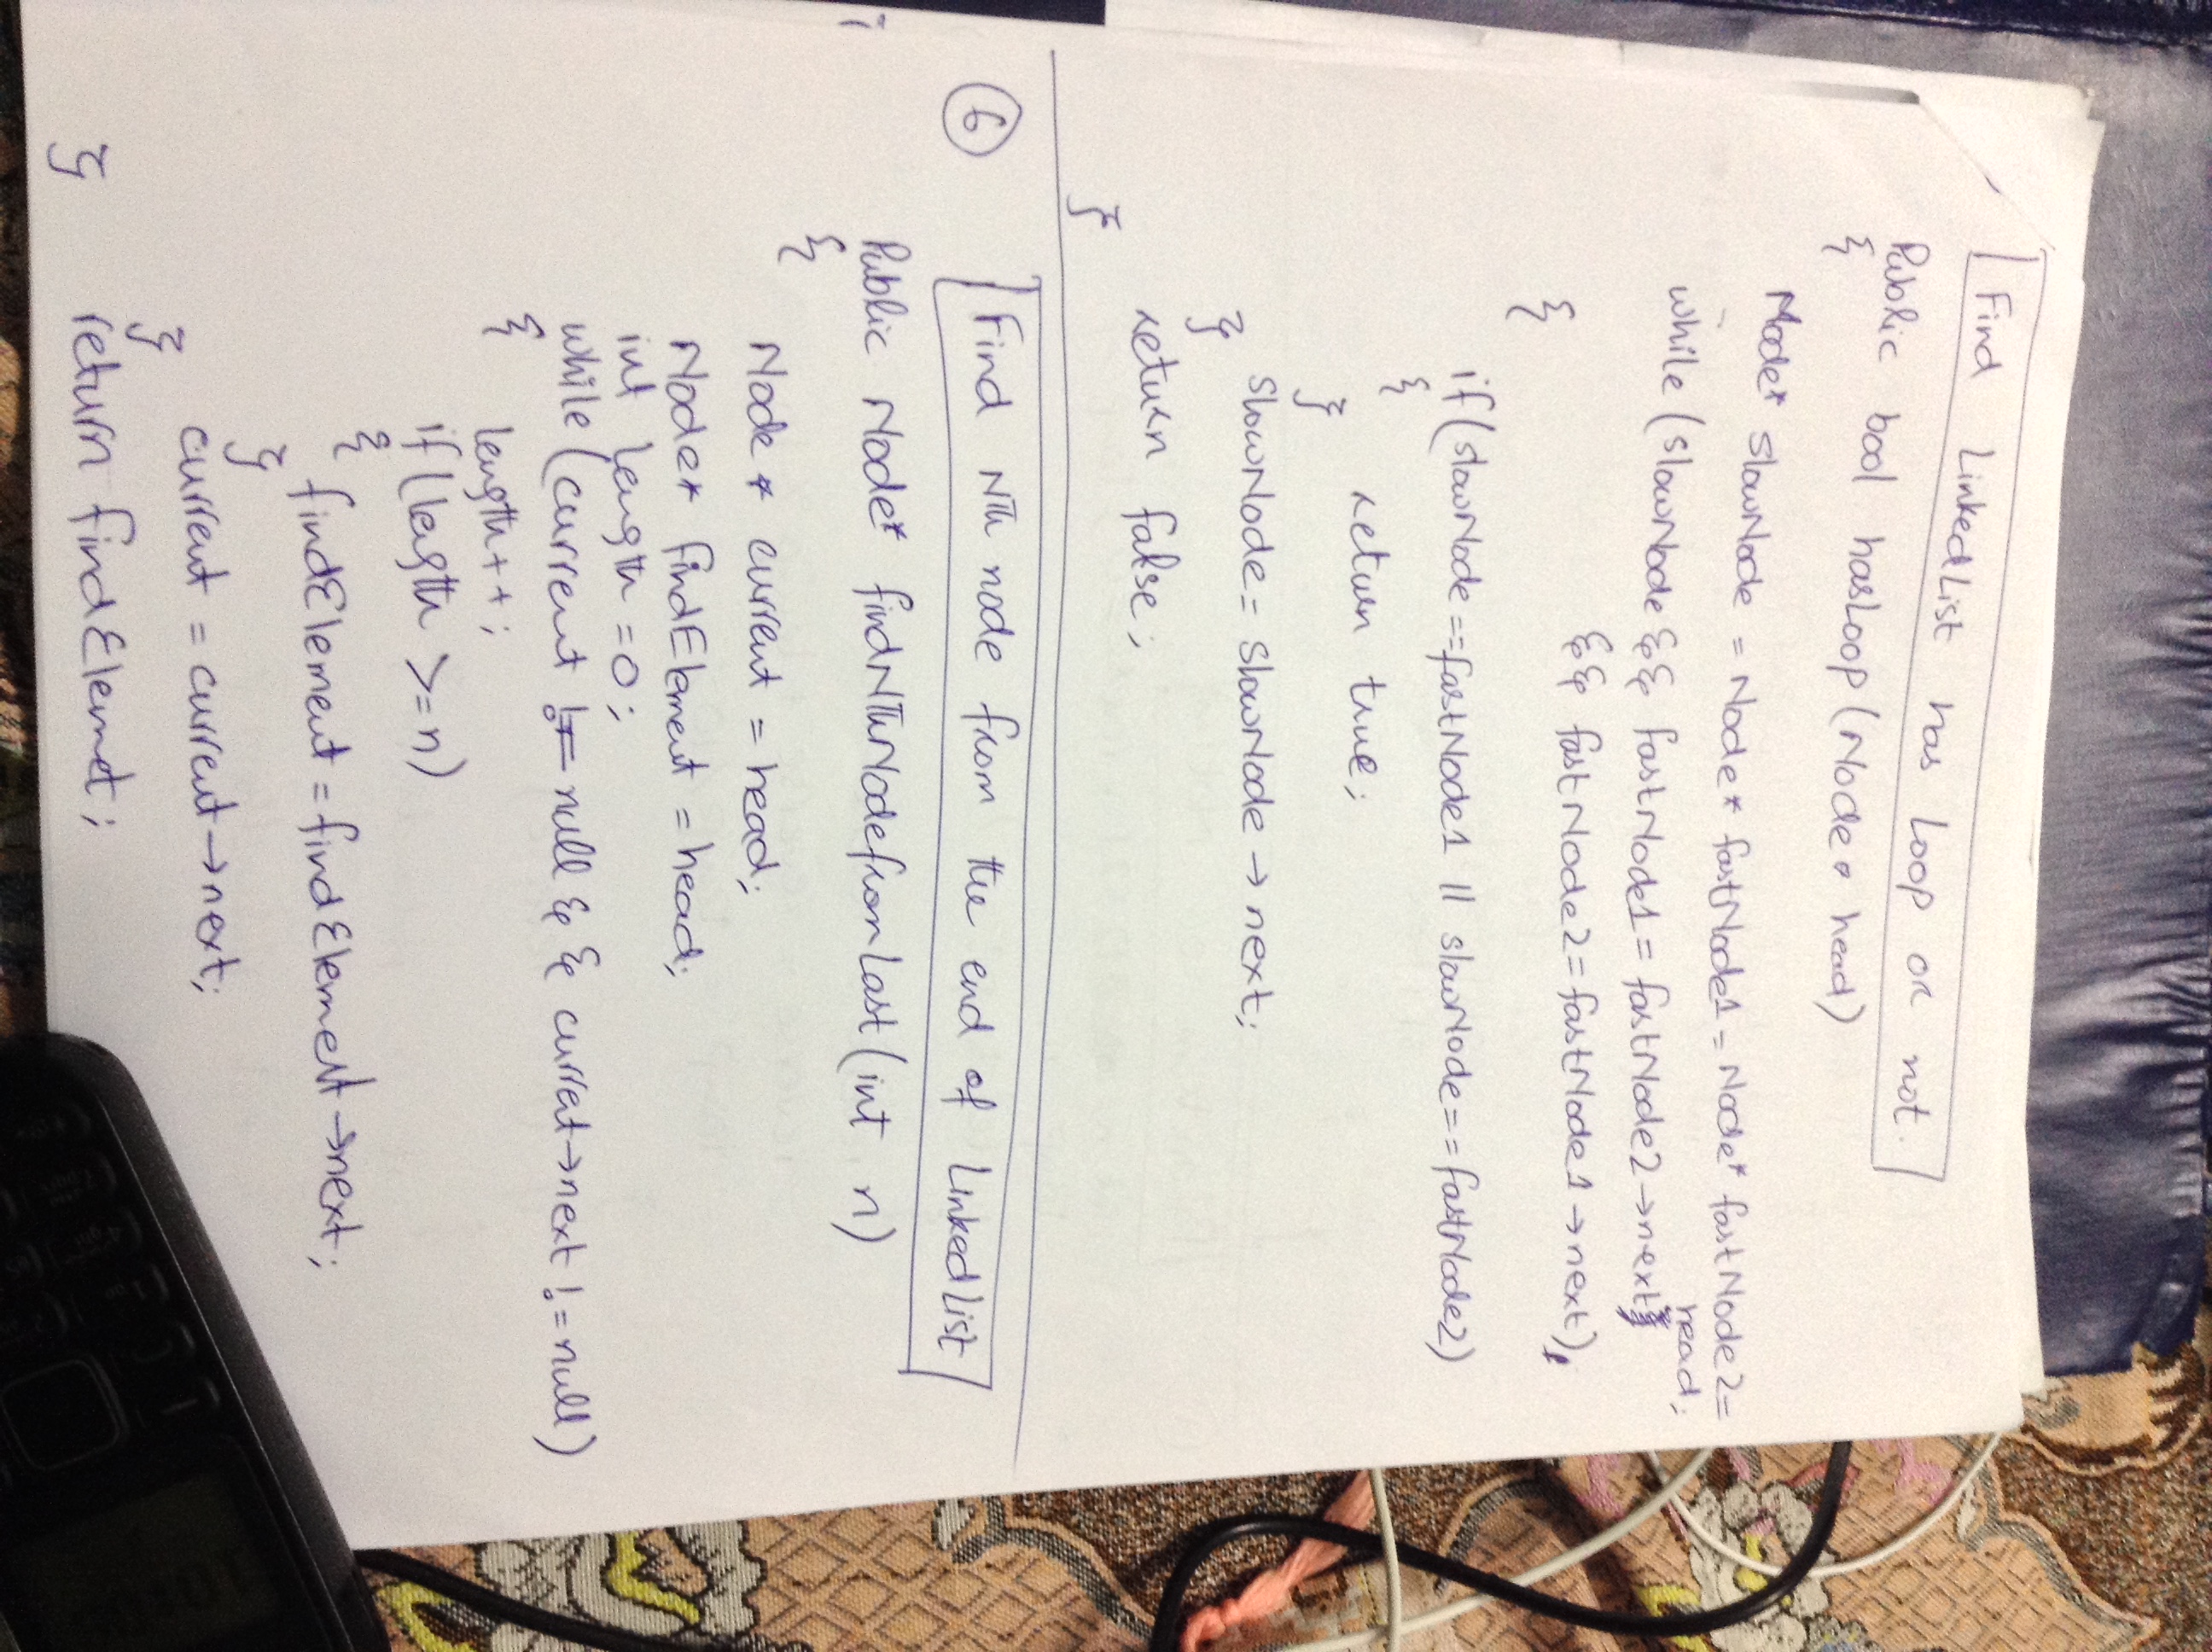 Find LinkedList has Loop or not.
Public bool hasLoop(Node* head)
{
Node* slowNode = Node* fastNode1 = Node* fastNode2 =
head;
while (slowNode && fastNode1 = fastNode2→next
&& fastNode2 = fastNode1→next)
{
if(slowNode ==fastNode1 || slowNode==fastNode2)
{
return true;
}
slowNode = slowNode → next;
}
return false;
}
6
Find Nth node from the end of LinkedList
Public Node* findNthNodefromLast(int n)
{
Node * current = head;
Node* findElement = head;
int length = 0;
while (current != null && curret→next != null)
{
length++;
if(length >= n)
{
findElement = findElement→next;
}
current = current→next;
}
return findElemet;
}